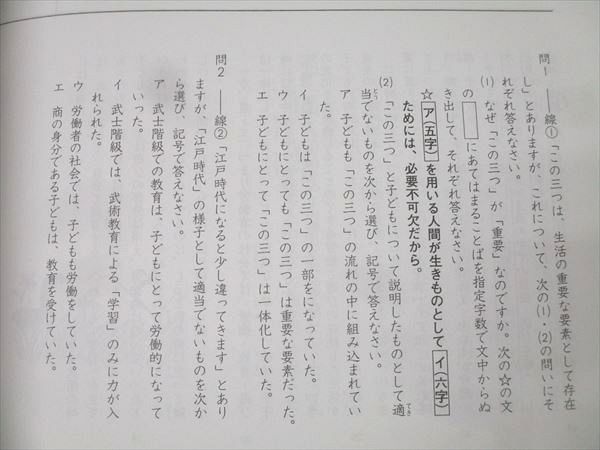 問1 ――線①「この三つは、生活の重要な要素として存在
し」とありますが、これについて、次の⑴・⑵の問いにそ
れぞれ答えなさい。
⑴ なぜ「この三つ」が「重要」なのですか。次の☆の文
の□にあてはまることばを指定字数で文中からぬ
き出して、それぞれ答えなさい。
☆ア(五字)を用いる人間が生きものとしてイ(六字)
ためには、必要不可欠だから。
⑵ 「この三つ」と子どもについて説明したものとして適
当でないものを次から選び、記号で答えなさい。
ア 子どもも「この三つ」の流れの中に組み込まれてい
た。
イ 子どもは「この三つ」の一部をになっていた。
ウ 子どもにとっても「この三つ」は重要な要素だった。
エ 子どもにとって「この三つ」は一体化していた。
問2 ――線②「江戸時代になると少し違ってきます」とあり
ますが、「江戸時代」の様子として適当でないものを次か
ら選び、記号で答えなさい。
ア 武士階級での教育は、子どもにとって労働的になって
いった。
イ 武士階級では、武術教育による「学習」のみに力が入
れられた。
ウ 労働者の社会では、子どもも労働をしていた。
エ 商の身分である子どもは、教育を受けていた。